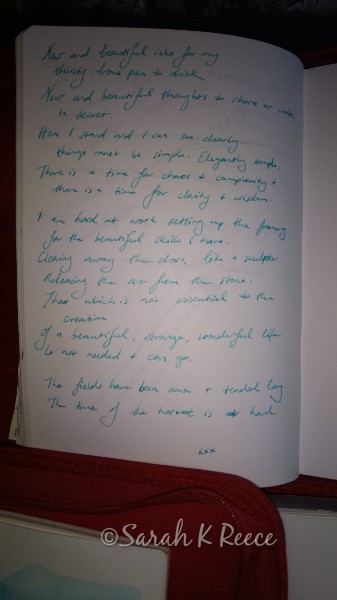 New and beautiful inks for my
thirsty bone pen to drink
New and beautiful thoughts to share or write
in secret.
Here I stand and I can see clearly
things must be simple. Elegantly simple.
There is a time for chaos + complexity +
there is a time for clarity + wisdom.
I am hard at work setting up the framing
for the beautiful skills I have.
Clearing away the dross, like a sculptor
Releasing the art from the stone.
That which is not essential to the
creation
Of a beautiful, strange, wonderful life
Is not needed + can go.
The fields have been sown + tended long
The time of the harvest is at hand
©Sarah K Reece